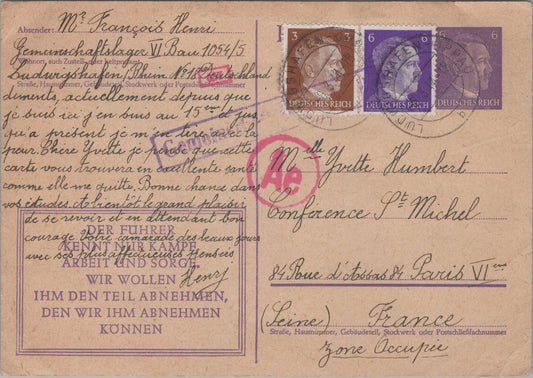 Absender: Mr François Henri
Gemeinschaftslager VI Bau 1054/5
Wohnort, auch Zustell- oder Leitpostamt
Ludwigshafen/Rhein Nº 18 Deutschland
Straße, Hausnummer, Gebäudeteil, Stockwerk oder Postschließfachnummer
diments, actuellement depuis que
je suis ici j'en suis au 15ème
qu'à présent je m'en tire
peur. Chère Yvette je pense que cette
carte vous trouvera en excellente santé
comme elle me quitte. Bonne chance dans
vos études. A bientôt le grand plaisir
de se revoir et en attendant bon
courage Votre camarade des beaux jours
avec ses plus affectueuses pensées
Henry
DER FÜHRER
KENNT NUR KAMPF,
ARBEIT UND SORGE.
WIR WOLLEN
IHM DEN TEIL ABNEHMEN,
DEN WIR IHM ABNEHMEN
KÖNNEN
3 3
DEUTSCHES REICH
6 6
DEUTSCHES REICH
6
DEUTSCHES REICH
Ae
Melle Yvette Humbert
Conférence St Michel
84 Roue d'Assas 84 Paris VIème
(Seine) France
Straße, Hausnummer, Gebäudeteil, Stockwerk oder Postschließfachnummer
Zone Occupée